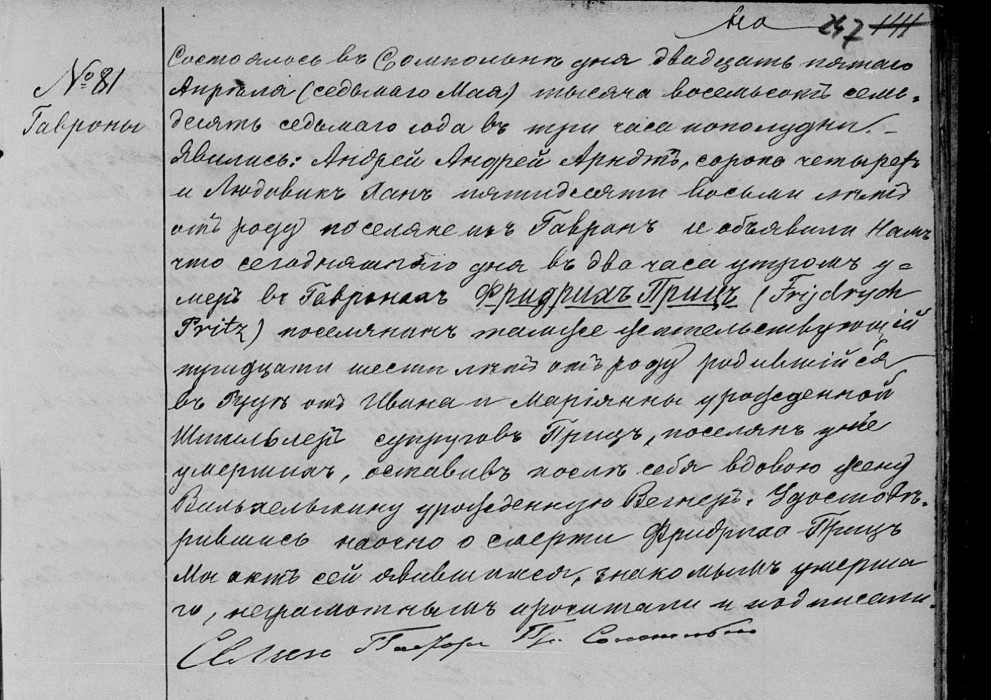 247 141
№ 81
Гавроны
Состоялось въ Сомпольнѣ дня двадцать пятаго
Апрѣля (седьмаго Мая) тысяча восемьсотъ семь-
десятъ седьмаго года въ три часа пополудни. -
Явились: Андрей Андрей Арндтъ, сорока четырехъ
и Людовикъ Ханъ пятидесяти восьми лѣтъ
отъ роду поселяне изъ Гавронъ и объявили Намъ
что сегодняшняго дня въ два часа утромъ у=
меръ въ Гавронахъ Фридрихъ Прицъ (Frydrych
Pritz) поселянинъ тамже жительствующій
тридцати шести лѣтъ отъ роду родившійся
въ отъ Ивана и Маріянны урожденной
супруговъ Прицъ, поселянъ уже
умершихъ, оставивъ послѣ себя вдовою жену
Вильхельмину урожденную Вегнеръ. Удостовѣ-
рившись наочно о смерти Фридриха Прицъ
Мы актъ сей явившимся, знакомымъ умерша
го, неграмотнымъ прочитали и подписали.
Пасторъ